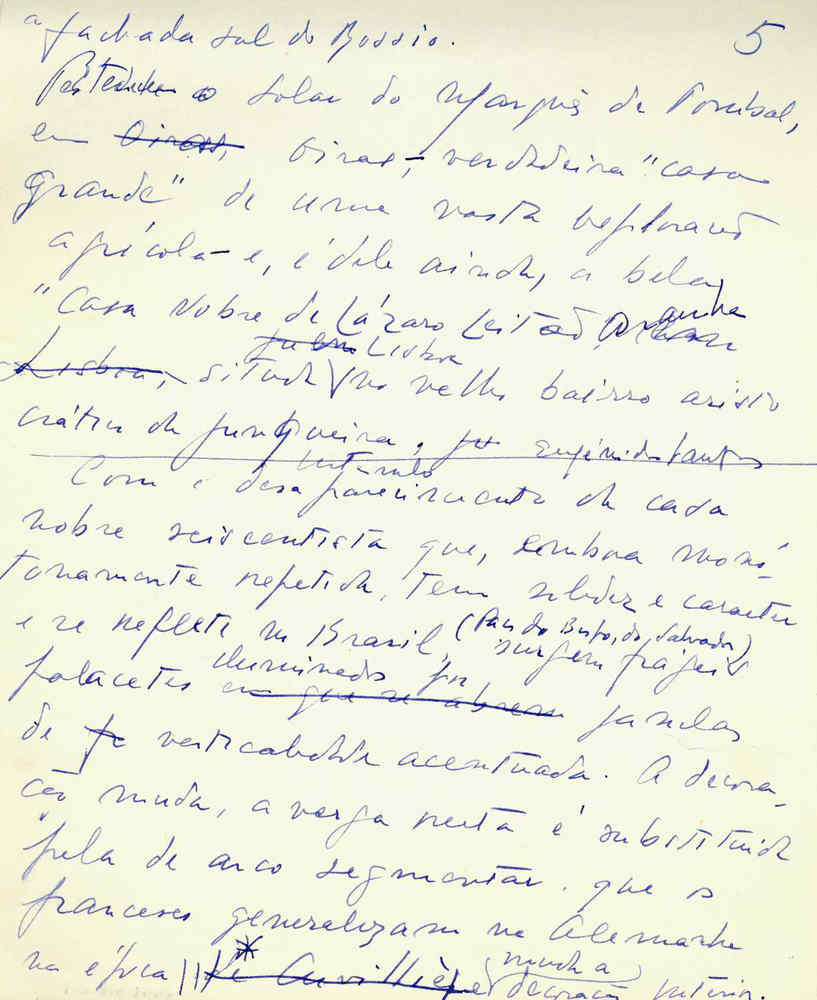 a fachada sul do Rossio.
5
o solar do Marquês de Pombal,
em Oeiras, Oeiras, verdadeira "casa
grande" de uma vasta exploração
agrícola e, é dele ainda, a bela
"Casa Nobre de Lázaro Leitão Aranha
Lisboa, Lisboa
situada no velho bairro aristo
crático da Junqueira,
Com o desaparecimento da casa
nobre seiscentista que, embora monó-
tonamente repetida, tem solidez e caracter
e se reflete no Brasil, (do Salvador) surgem frágeis
palacetes iluminados por em que se abrem janelas
de verticalidade acentuada. A decora-
ção muda, a verga reta é substituida
pela de arco segmentar que os
franceses generalizam na Alemanha
na época Cuvilliès e muda a decoração interior.